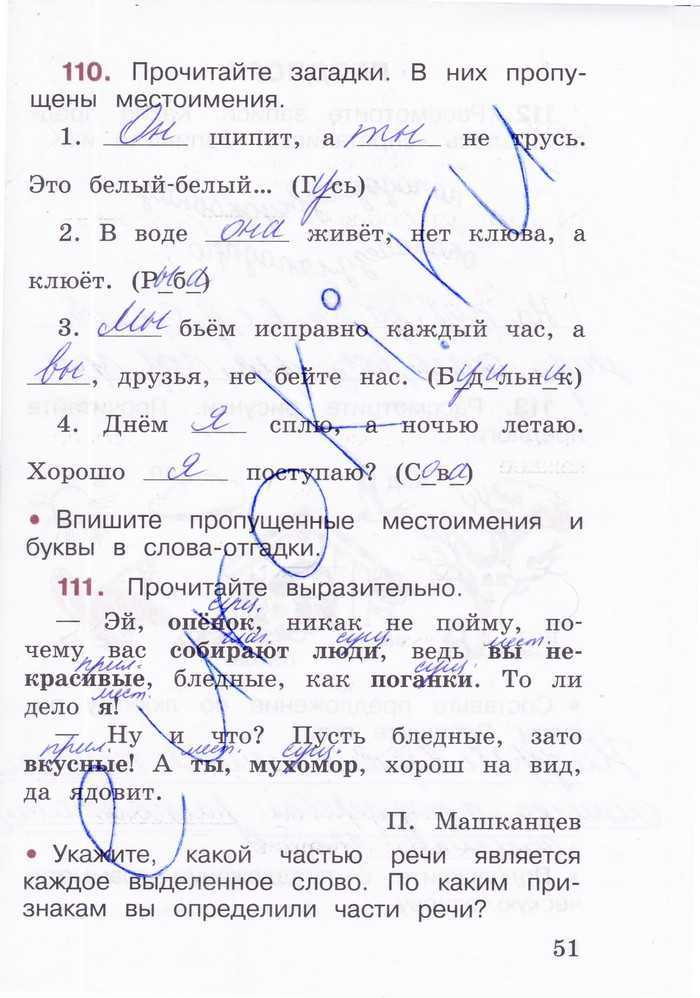 110. Прочитайте загадки. В них пропу-
щены местоимения.
1. Он шипит, а ты не трусь.
Это белый-белый... (Гусь)
2. В воде она живёт, нет клюва, а
клюёт. (Рыба)
3. Мы бьём исправно каждый час, а
вы, друзья, не бейте нас. (Будильник)
4. Днём я сплю, а ночью летаю.
Хорошо я поступаю? (Сова)
• Впишите пропущенные местоимения и
буквы в слова-отгадки.
111. Прочитайте выразительно.
сущ.
— Эй, опёнок, никак не пойму, по-
глаг. сущ. мест.
чему вас собирают люди, ведь вы не-
прил. сущ.
красивые, бледные, как поганки. То ли
мест.
дело я!
— Ну и что? Пусть бледные, зато
прил. мест. сущ.
вкусные! А ты, мухомор, хорош на вид,
да ядовит.
П. Машканцев
• Укажите, какой частью речи является
каждое выделенное слово. По каким при-
знакам вы определили части речи?
51